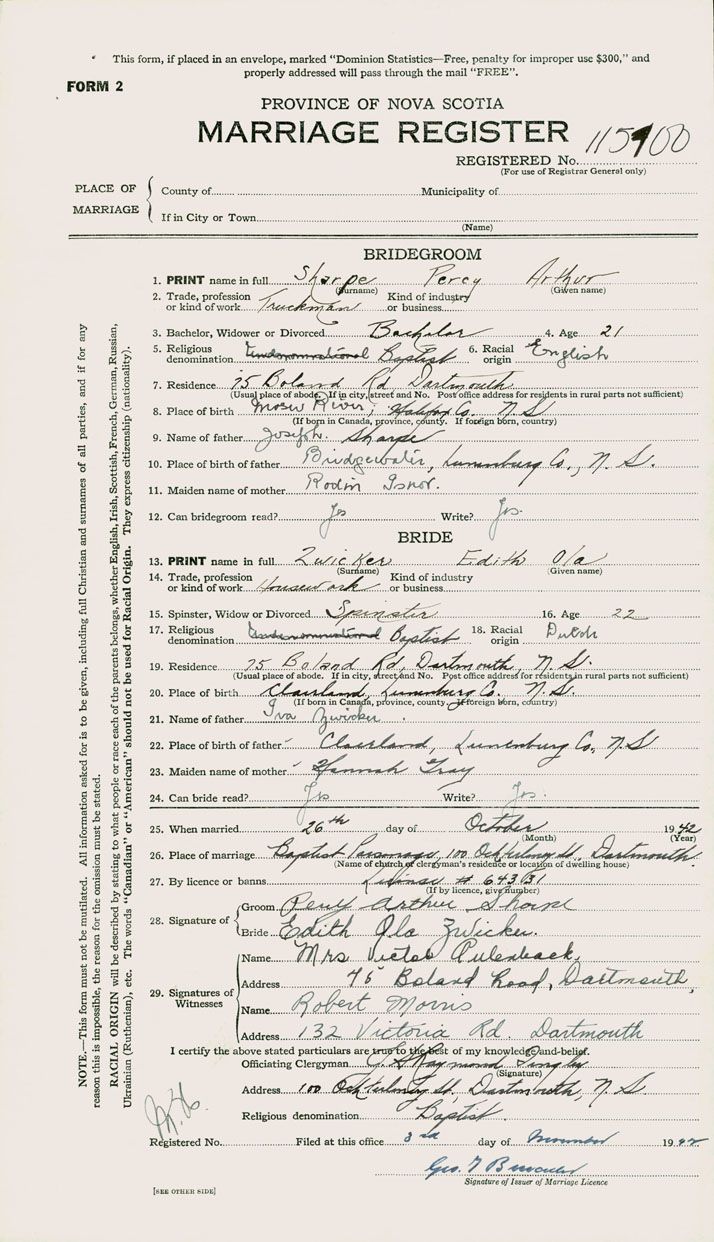 This form, if placed in an envelope, marked "Dominion Statistics—Free, penalty for improper use $300," and
properly addressed will pass through the mail "FREE".
FORM 2
PROVINCE OF NOVA SCOTIA
MARRIAGE REGISTER
115900
REGISTERED No.
(For use of Registrar General only)
PLACE OF MARRIAGE
County of Municipality of
If in City or Town
(Name)
BRIDEGROOM
1. PRINT name in full Sharpe Percy Arthur
(Surname) (Given name)
2. Trade, profession or kind of work Truckman Kind of industry or business
3. Bachelor, Widower or Divorced Bachelor 4. Age 21
5. Religious denomination Baptist 6. Racial origin English
7. Residence 75 Boland Rd, Dartmouth
(Usual place of abode. If in city, street and No. Post office address for residents in rural parts not sufficient)
8. Place of birth Moser River, Halifax Co. N.S
(If born in Canada, province, county. If foreign born, country)
9. Name of father Joseph Sharpe
10. Place of birth of father Bridgewater, Lunenburg Co., N.S.
11. Maiden name of mother
12. Can bridegroom read? Yes Write? Yes
BRIDE
13. PRINT name in full Zwicker Edith Ola
(Surname) (Given name)
14. Trade, profession or kind of work Housework Kind of industry or business
15. Spinster, Widow or Divorced Spinster 16. Age 22
17. Religious denomination Baptist 18. Racial origin Dutch
19. Residence 75 Boland Rd, Dartmouth, N.S.
(Usual place of abode. If in city, street and No. Post office address for residents in rural parts not sufficient)
20. Place of birth Clearland, Lunenburg Co. N.S.
(If born in Canada, province, county. If foreign born, country)
21. Name of father Iva Zwicker
22. Place of birth of father Clearland, Lunenburg Co, N.S
23. Maiden name of mother Hannah
24. Can bride read? Yes Write? Yes.
25. When married 26th day of October 1942
(Month) (Year)
26. Place of marriage Baptist Parsonage, 100 Ochterloney St, Dartmouth
(Name of church or clergyman's residence or location of dwelling house)
27. By licence or banns License # 643131
(If by licence, give number)
28. Signature of
Groom Percy Arthur Sharpe
Bride Edith Ola Zwicker.
29. Signatures of Witnesses
Name Mrs Victor
Address 75 Boland Road, Dartmouth,
Name Robert Morris
Address 132 Victoria Rd. Dartmouth
I certify the above stated particulars are true to the best of my knowledge and belief.
Officiating Clergyman
(Signature)
Address 100 Ochterloney St, Dartmouth, N.S
Religious denomination Baptist
Registered No. Filed at this office 3rd day of November 1942
Geo.
Signature of Issuer of Marriage Licence
[SEE OTHER SIDE]
NOTE.—This form must not be mutilated. All information asked for is to be given, including full Christian and surnames of all parties, and if for any
reason this is impossible, the reason for the omission must be stated.
RACIAL ORIGIN will be described by stating to what people or race each of the parents belongs, whether English, Irish, Scottish, French, German, Russian,
Ukrainian (Ruthenian), etc. The words "Canadian" or "American" should not be used for Racial Origin. They express citizenship (nationality).